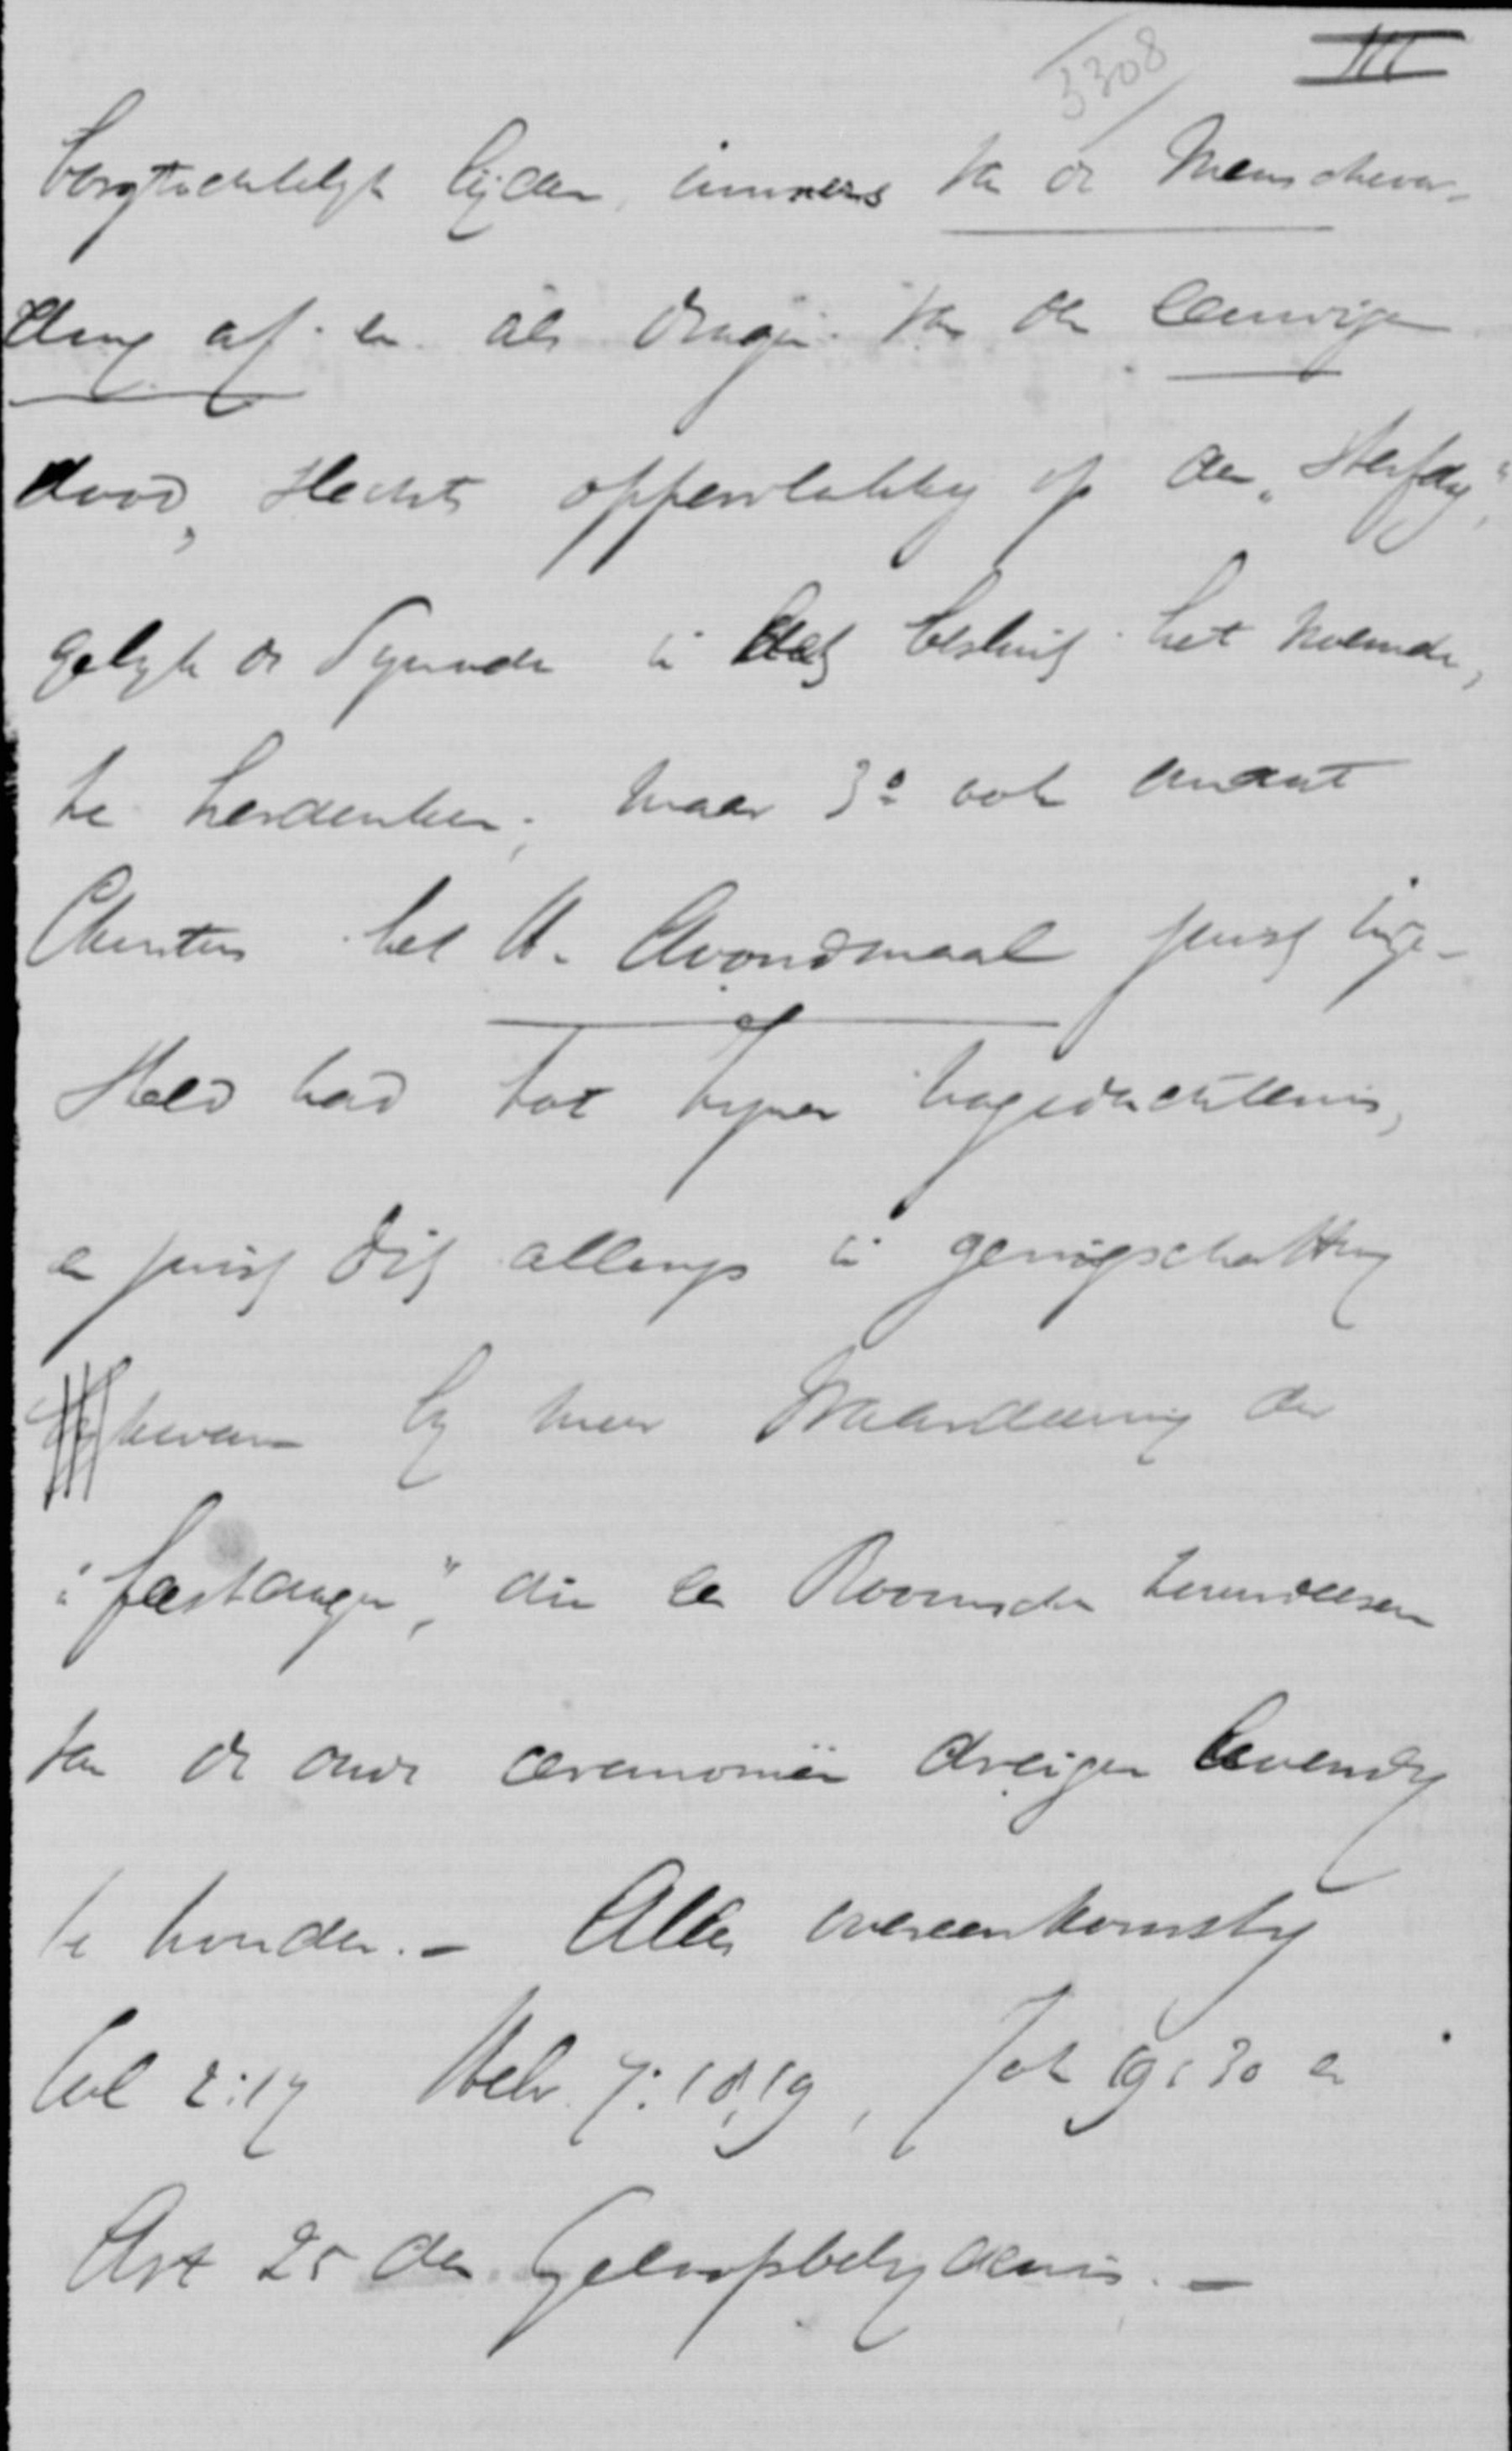 3308 III
borgtochtelijk lijden, immers van de Menschwor-
ding af en als drager van den eeuwigen
dood, slechts oppervlakkig op den „Sterfdag",
gelijk de Synode in dat besluit het noemde,
te herdenken; maar 3º ook omdat
Christus het H. Avondmaal juist inge-
steld had tot zijner nagedachtenis,
en juist dit allengs in geringschatting
kwam bij meer waardeering der
„feestdagen", die en Roomsche
van de oude ceremoniën dreigen levendig
te houden. – Alles overeenkomstig
Col 2:17 Hebr. 7:18,19, Joh 19:30 en
Art 25 der Geloofsbelijdenis. –